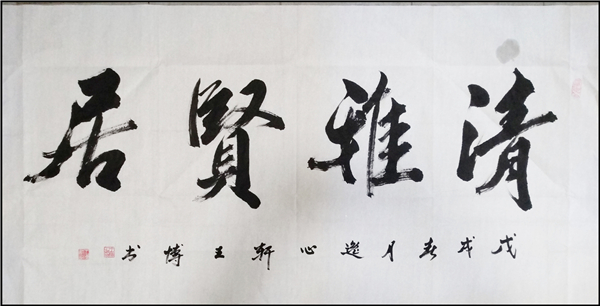 清雅賢居
戊戌春月逸心軒王博书